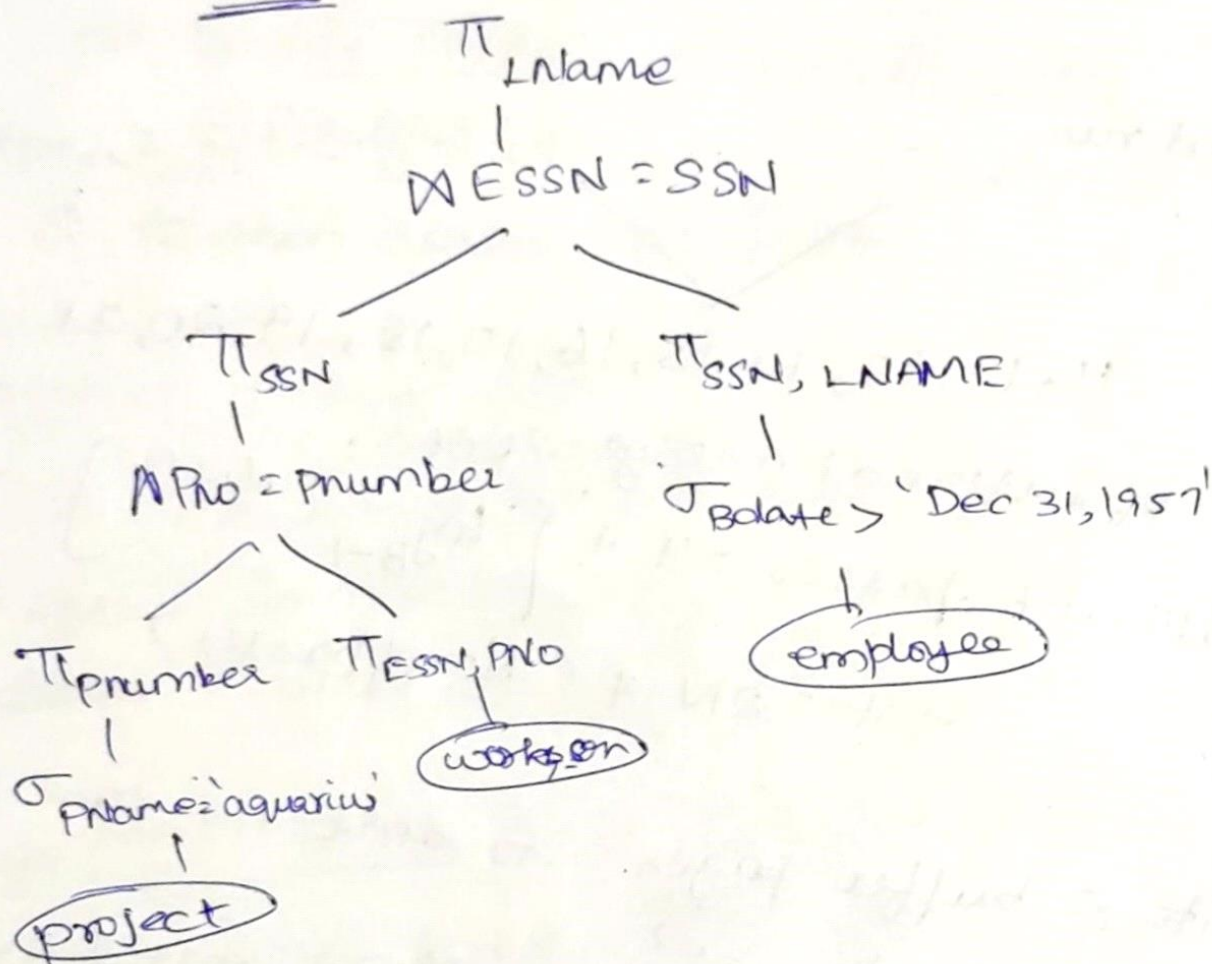 π LName
⋈ ESSN = SSN
π SSN
π SSN, LNAME
⋈ Pno = Pnumber
σ Bdate > 'Dec 31, 1957'
π Pnumber
π ESSN, PNO
employee
works_on
σ PName = 'aquarius'
project